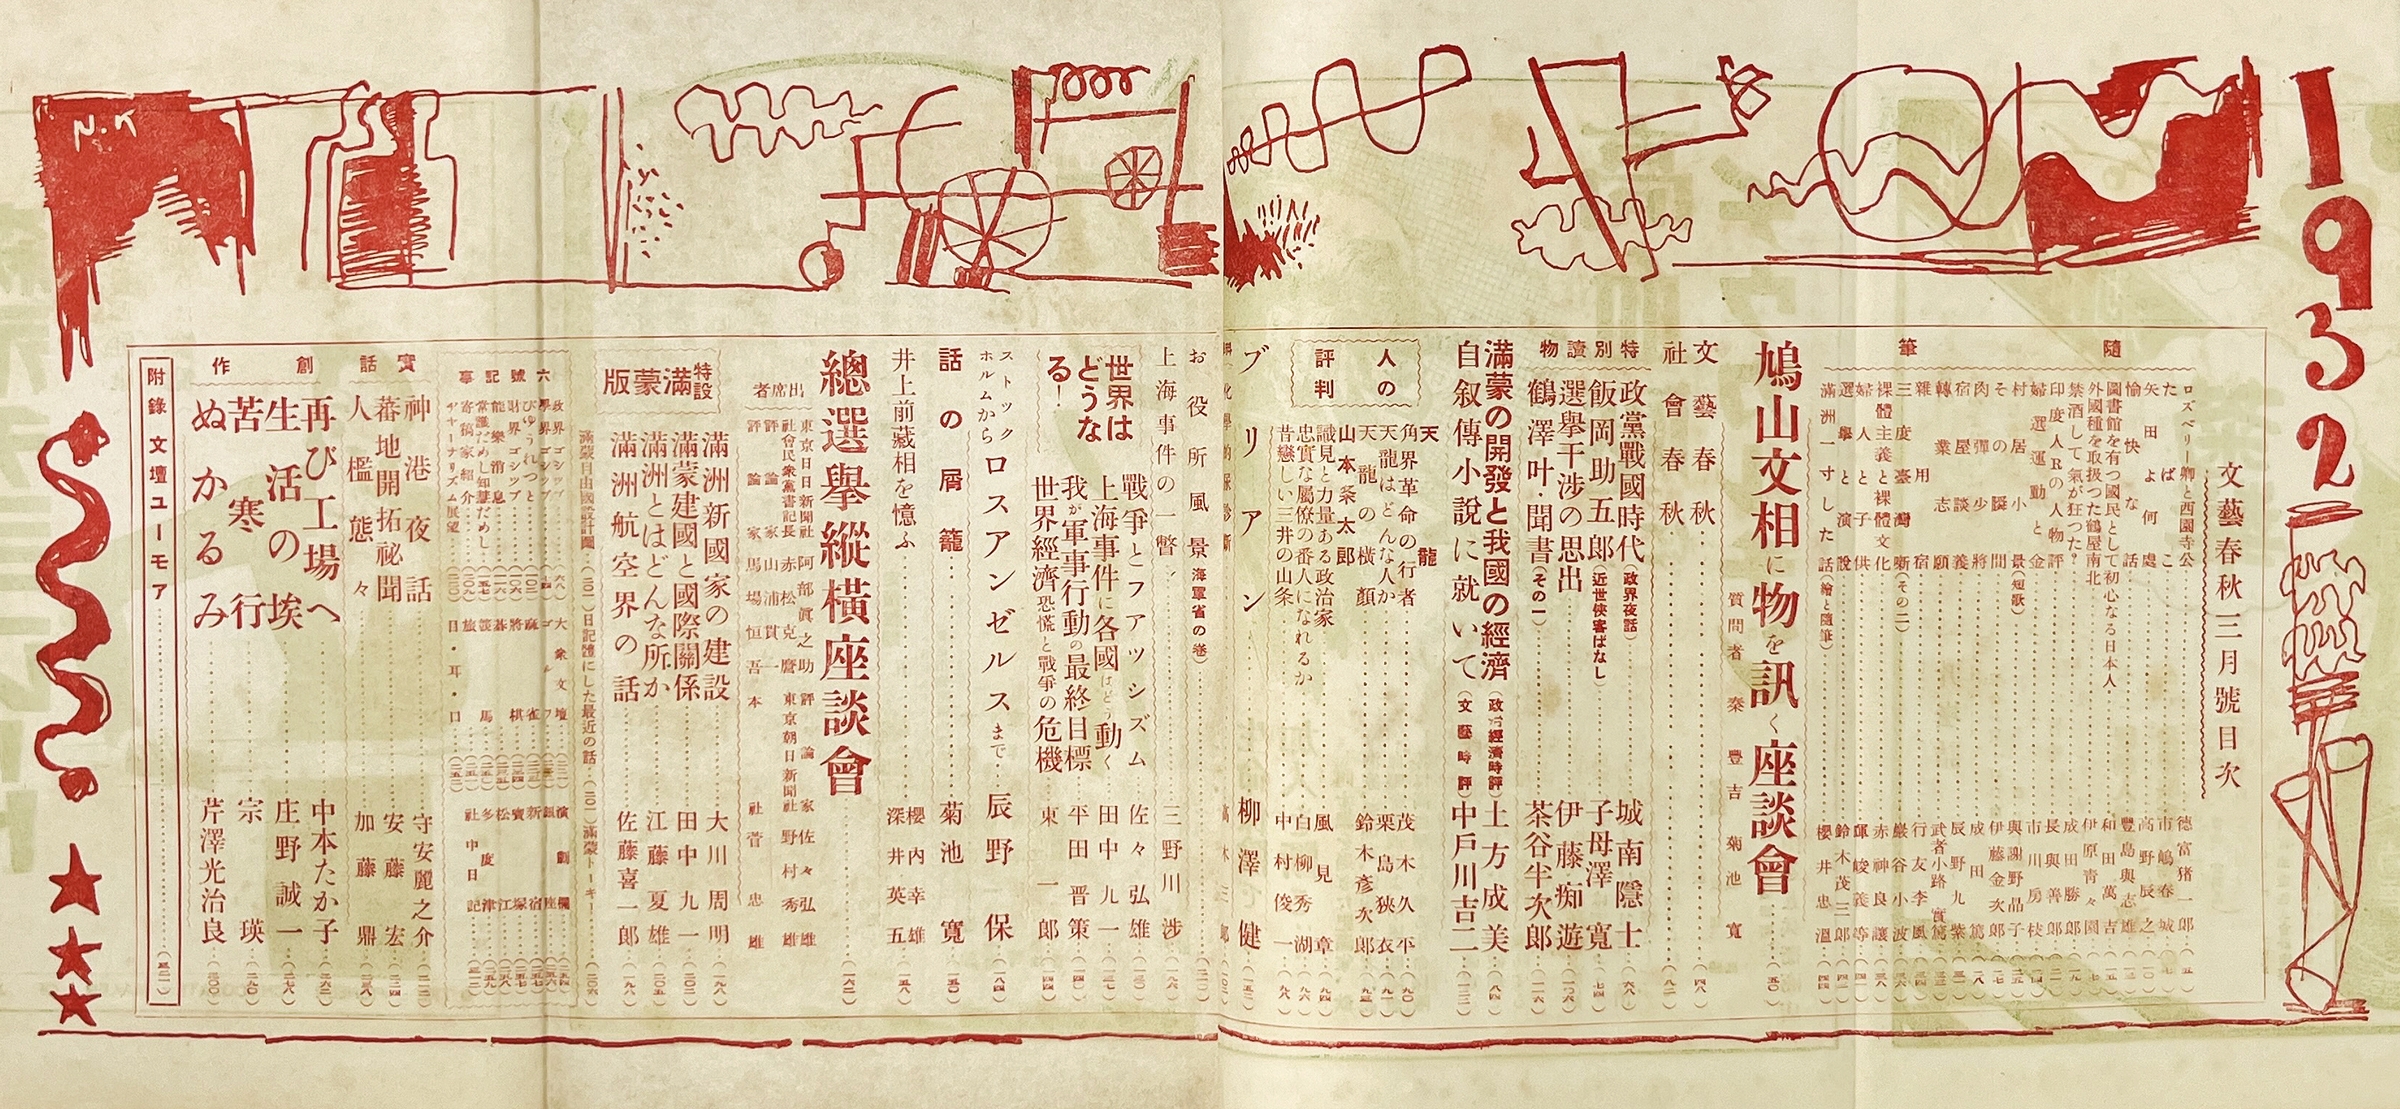 1932
文藝春秋三月號目次
隨筆
ロズベリー卿と西園寺公 德富猪一郎 (五)
たばこ 市嶋春城 (七)
矢田よ何處 高野辰之 (一〇)
愉快な話 豐島與志雄
圖書館を有つ國民として初心なる日本人 和田萬吉
外國種を取扱つた鶴屋南北 伊原青々園
禁酒して氣が狂つた? 成田勝郎 (一九)
印度人Rの人物評 長與善郎
婦選運動と金 市川房枝
村居小景(短歌) 與謝野晶子
その隨間 伊藤金次郎
肉彈少將 成田篤
宿屋談義 辰野九紫
轉業志願 武者小路實篤
雜用宿 行友李風
三度臺灣噺(その二) 巖谷小波
裸體主義と裸體文化 赤神良讓
婦人と子供
選擧と演説 鈴木茂三郎
滿洲一寸した話(繪と隨筆) 櫻井忠溫
鳩山文相に物を訊く座談會 (五〇)
質問者 秦豐吉 菊池寬
文藝春秋 (四八)
社會春秋 (八二)
特別讀物
政黨戰國時代(政界夜話) 城南隱士 (六八)
飯岡助五郎(近世俠客ばなし) 子母澤寬 (七四)
選擧干渉の思出 伊藤痴遊
鶴澤叶・聞書(その一) 茶谷半次郎 (一一六)
滿蒙の開發と我國の經濟(政治經濟時評) 土方成美 (八四)
自叙傳小說に就いて(文藝時評) 中戶川吉二
人の評判
天龍
角界革命の行者 茂木久平 (九〇)
天龍はどんな人か 栗島狹衣 (九一)
天龍の橫顏 鈴木彥次郎
山本条太郎
識見と力量ある政治家 風見章 (九四)
忠實な屬僚の番人になれるか 白柳秀湖 (九六)
昔戀しい三井の山条 中村俊一 (九八)
ブリアン 柳澤健
お役所風景(海軍省の卷)
上海事件の一瞥 三野川渉
世界はどうなる!
戰爭とファッシズム 佐々弘雄
上海事件に各國はどう動く 田中九一
我が軍事行動の最終目標 平田晋策
世界經濟恐慌と戰爭の危機 東一郎
ストックホルムからロスアンゼルスまで 辰野保 (一八四)
話の屑籠 菊池寬 (一五〇)
井上前藏相を憶ふ 櫻內幸雄 深井英五 (一五八)
總選擧縱橫座談會 (一六二)
出席者
東京日日新聞社 阿部眞之助
社會民衆黨書記長 赤松克麿
評論家 山浦貫一
評論家 馬場恒吾
評論家 佐々弘雄
東京朝日新聞社 野村秀雄
本社 菅忠雄
特設滿蒙版
滿洲新國家の建設 大川周明 (一九八)
滿蒙建國と國際關係 田中九一 (二〇二)
滿洲とはどんな所か 江藤夏雄 (二〇五)
滿洲航空界の話 佐藤喜一郎 (一九八)
滿蒙自由國設計圖 (二〇二) 日記體にした最近の話 (二〇一) 滿蒙トーキー (二〇六)
六號記事
政界ゴシップ
學界ゴシップ
びゆうれつと
財界ゴシップ
龍樂消息
常識だめし知慧だめし
寄稿家紹介
ヂャーナリズム展望
大衆文壇
ゴルフ
麻雀
將棋
圍碁
競馬
旅
日・耳・口
演劇欄
銀座
新宿
寶塚
松江
多度津
社中日記
實話
神港夜話 守安麗之介
蕃地開拓祕聞 安藤宏
人檻態々 加藤鼎
創作
再び工場へ 中本たか子 (二六二)
生活の埃 庄野誠一 (二七八)
苦寒行 宗瑛 (二九〇)
ぬかるみ 芹澤光治良 (三〇〇)
附錄 文壇ユーモア
N.K